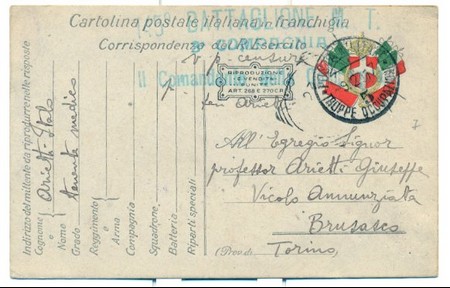 BATTAGLIONE M. T.
COMPAGNIA
Cartolina postale italiana in franchigia
Corrispondenza del R. Esercito
v/o censura
Il Comandante della
RIPRODUZIONE
E VENDITA
PUNITE
ART. 268 E 270 C.P.
TRUPPE D'OCCUPAZ
All' Egregio Signor
professor Arietti Giuseppe
Vicolo Annunziata
Brusasco
(Prov. di) Torino
Indirizzo del mittente da riprodurre nelle risposte
Cognome e Nome Arietti Italo
Grado tenente medico
Reggimento o Arma
Compagnia
Squadrone
Batteria
Riparti speciali